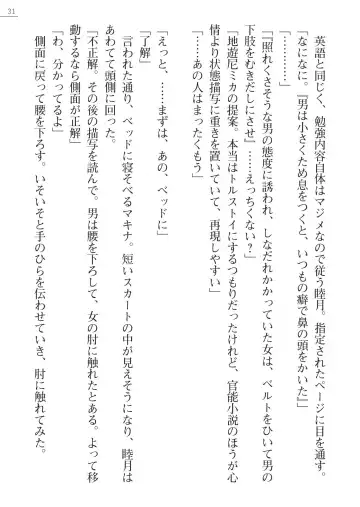 31
英語と同じく、勉強内容自体はマジメなので従う睦月。指定されたページに目を通す。
『なになに、『男は小さくため息をつくと、いつもの癖で鼻の頭をかいた』」
「…………」
『照れくさそうな男の態度に誘われ、しなだれかかっていた女は、ベルトをひいて男の
下肢をむきだしにさせ』……えっちくない?」
「地遊尼ミカの提案。本当はトルストイにするつもりだったけれど、官能小説のほうが心
情より状態描写に重きを置いていて、再現しやすい」
「……あの人はまったくもう」
「えっと、……まずは、あの、ベッドに」
「了解」
言われた通り、ベッドに寝そべるマキナ。短いスカートの中が見えそうになり、睦月は
あわてて頭側に回った。
「不正解。その後の描写を読んで。男は腰を下ろして、女の肘に触れたとある。よって移
動するなら側面が正解」
「わ、分かってるよ」
側面に戻って腰を下ろす。いそいそと手のひらを伝わせていき、肘に触れてみた。